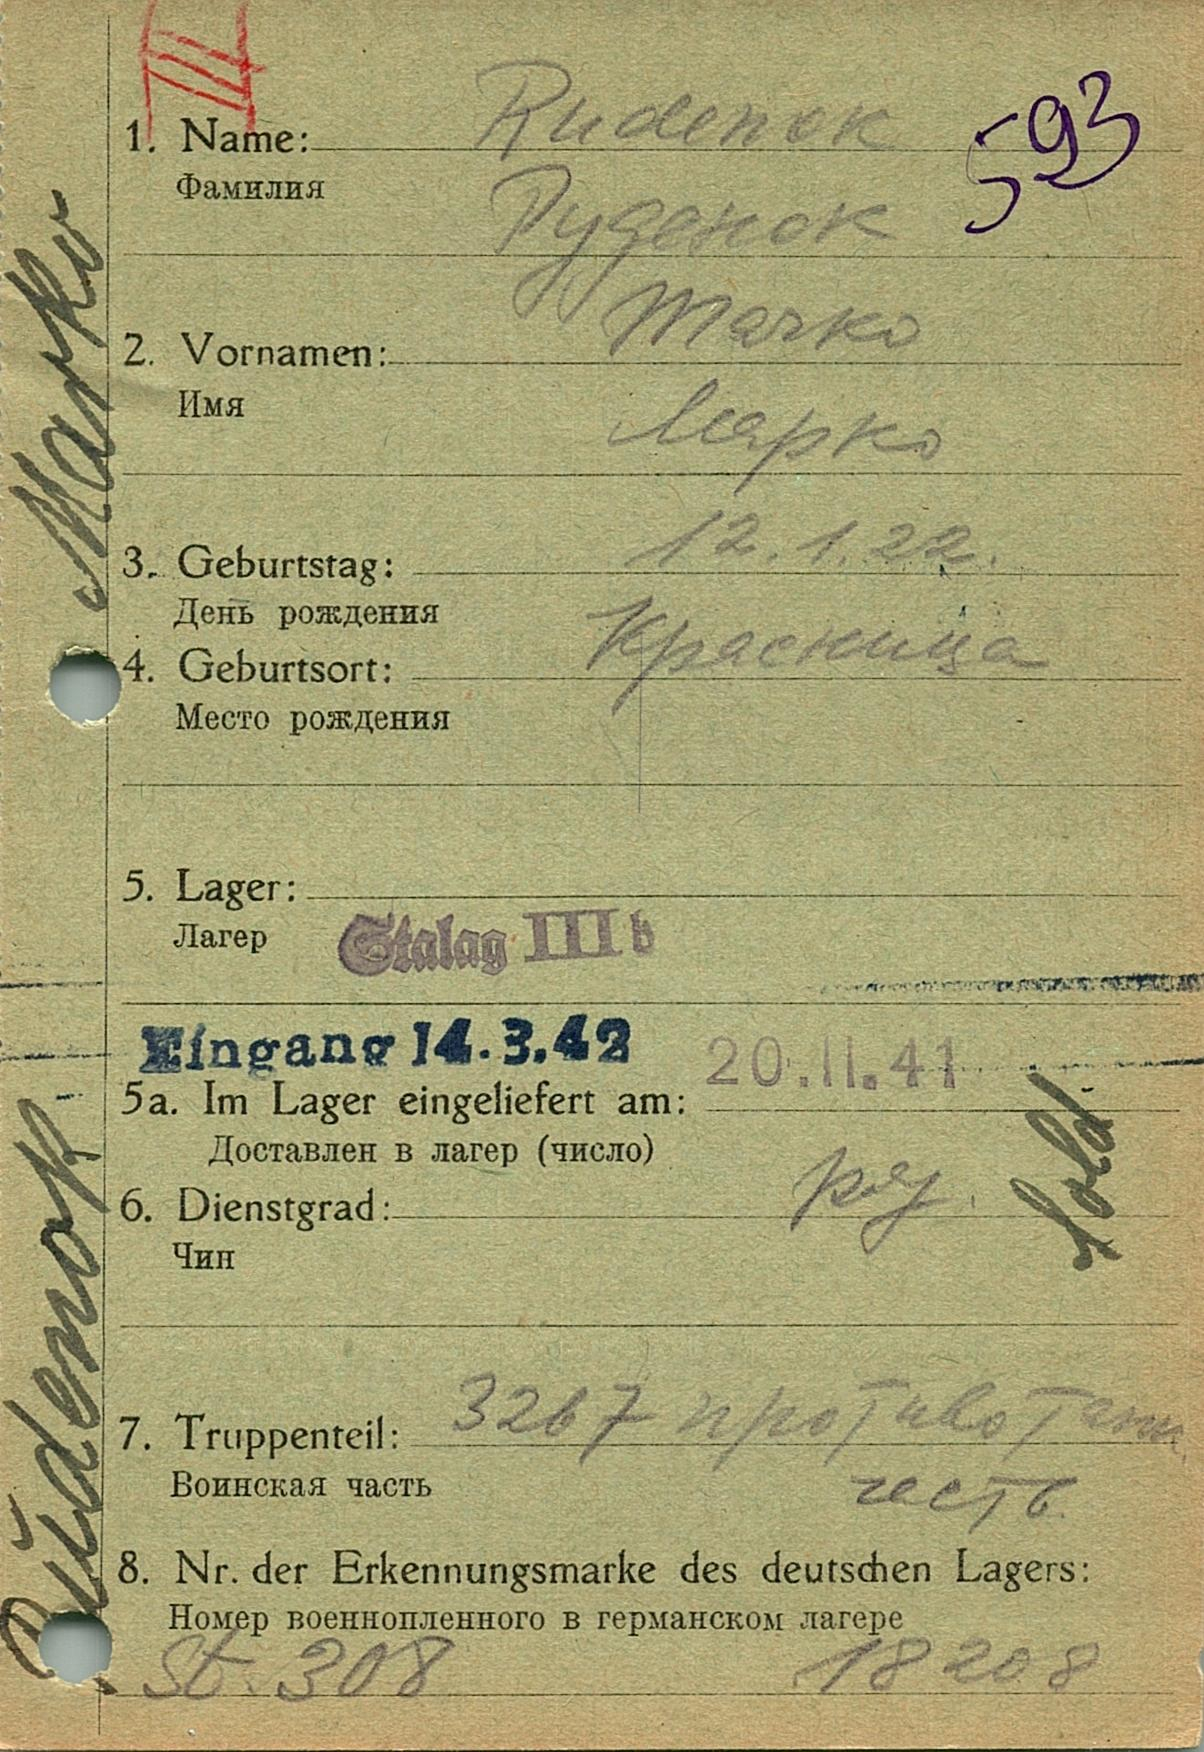 III
593
1. Name: Rudenok
Фамилия
Руденок
2. Vornamen: Marko
Имя
Марко
3. Geburtstag: 12.1.22.
День рождения
4. Geburtsort: Красница
Место рождения
5. Lager:
Лагер
Stalag III b
Eingang 14.3.42
20.11.41
5a. Im Lager eingeliefert am:
Доставлен в лагер (число)
6. Dienstgrad: ряд.
Чин
7. Truppenteil: 3267 противотанк
Воинская часть
часть
8. Nr. der Erkennungsmarke des deutschen Lagers:
Номер военнопленного в германском лагере
St. 308 18208
Rŭdenok Marko
Sold.